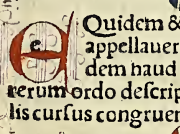 e Quidem &
appellauer
dem haud
rerum ordo descrip
lis cursus congruen